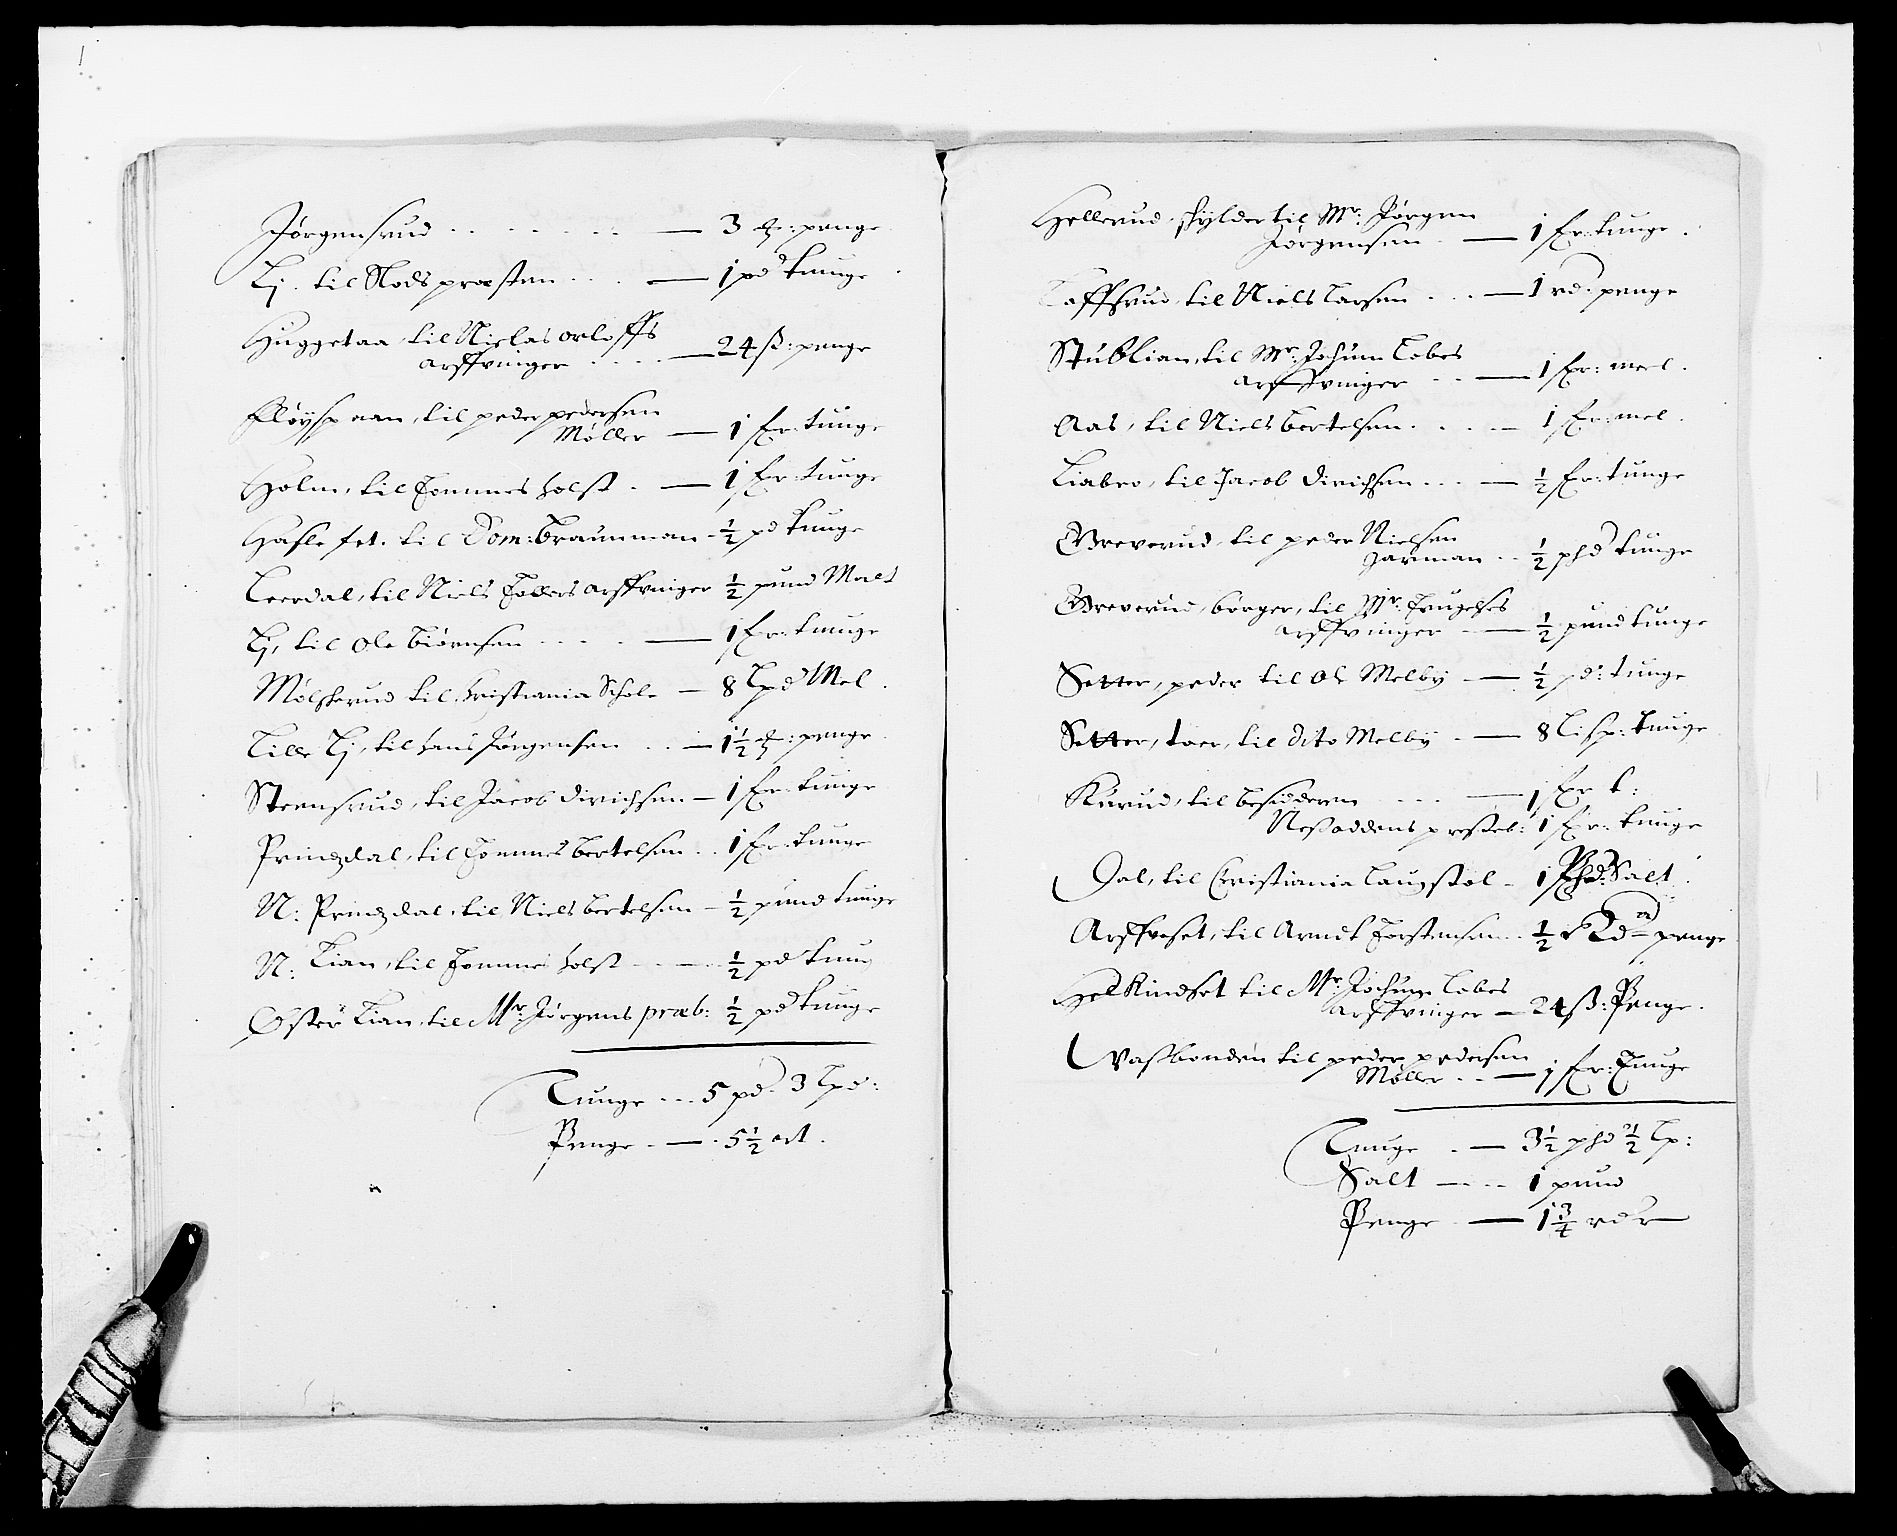 Jørgensrud . . . . . . . — 3 ℔: penge
Lj. til Nods præsten . . . — 1 pd tunge
Huggetaa til Nielas orloffs
arffvinger . . . . — 24 ß: penge
Fløyspaan, til peder pedersen
Møller — 1 fr: tunge
Holm, til Tommes Holst . — 1 fr: tunge
Hasle fet. til Dom: Braunman - ½ pd tunge
Leerdal, til Niels Tollers arffvinger ½ pund Malt
Lj, til Ole Biørnsen . . . . — 1 fr: tunge
Mølskerud til Christiania Schole — 8 Lpd Mel .
Lille Lj, til Hans Jørgensen . . — 1½ : penge
Steensrud, til Jacob Dirichsen — 1 fr: tunge
Prindzdal, til Tommes Bertelsen . . 1 fr: tunge
N: Prindzdal, til Niels Bertelsen — ½ pund tunge
N: Lian, til Tommes Holst — — ½ pd tung
Øster Lian, til Mr: Jørgens præb: ½ pd tunge
Tunge - - - 5 pd. 3 Lpd:
Penge . — . 5½ ort .
Hellerud, skylder til Mr: Jørgen
Jørgensen . — 1 fr: tunge .
Taffsrud, til Niels Larsen . . . — 1 rd. penge
Stublian, til Mr: Jochum Lobes
arffvinger . . — 1 fr: meel .
Aas, til Niels Bertelsen . . . — 1 fr: mel .
Liabro, til Jacob Dirichsen . . . — ½ fr: tunge
Greverud, til peder Nielsen
Jarman . . ½ phd tunge
Greverud, børger, til Mr: Trugelses
arffvinger — ½ pund tunge
Setter, peder til Ole Melby — ½ pd: tunge
Setter, toer, til dito Melby . — 8 Lisp: tunge
Kurud, til besidderen . . . — 1 fr t:
Nessoddens presteb: 1 fr: tunge
Dal, til Christiania Laugstol - 1 Phd: Salt .
Arffveset, til Arendt Torstensen . . ½ Rdr penge
Helkindset til Mr: Jochum Lobes
arffvinger — 24 ß: Penge .
Wassbonden til peder pedersen
Møller . . — 1 fr: Tunge
Tunge . — 3½ phd ½ Lp:
Salt — . . . 1 pund
Penge . — 1¾ rdr